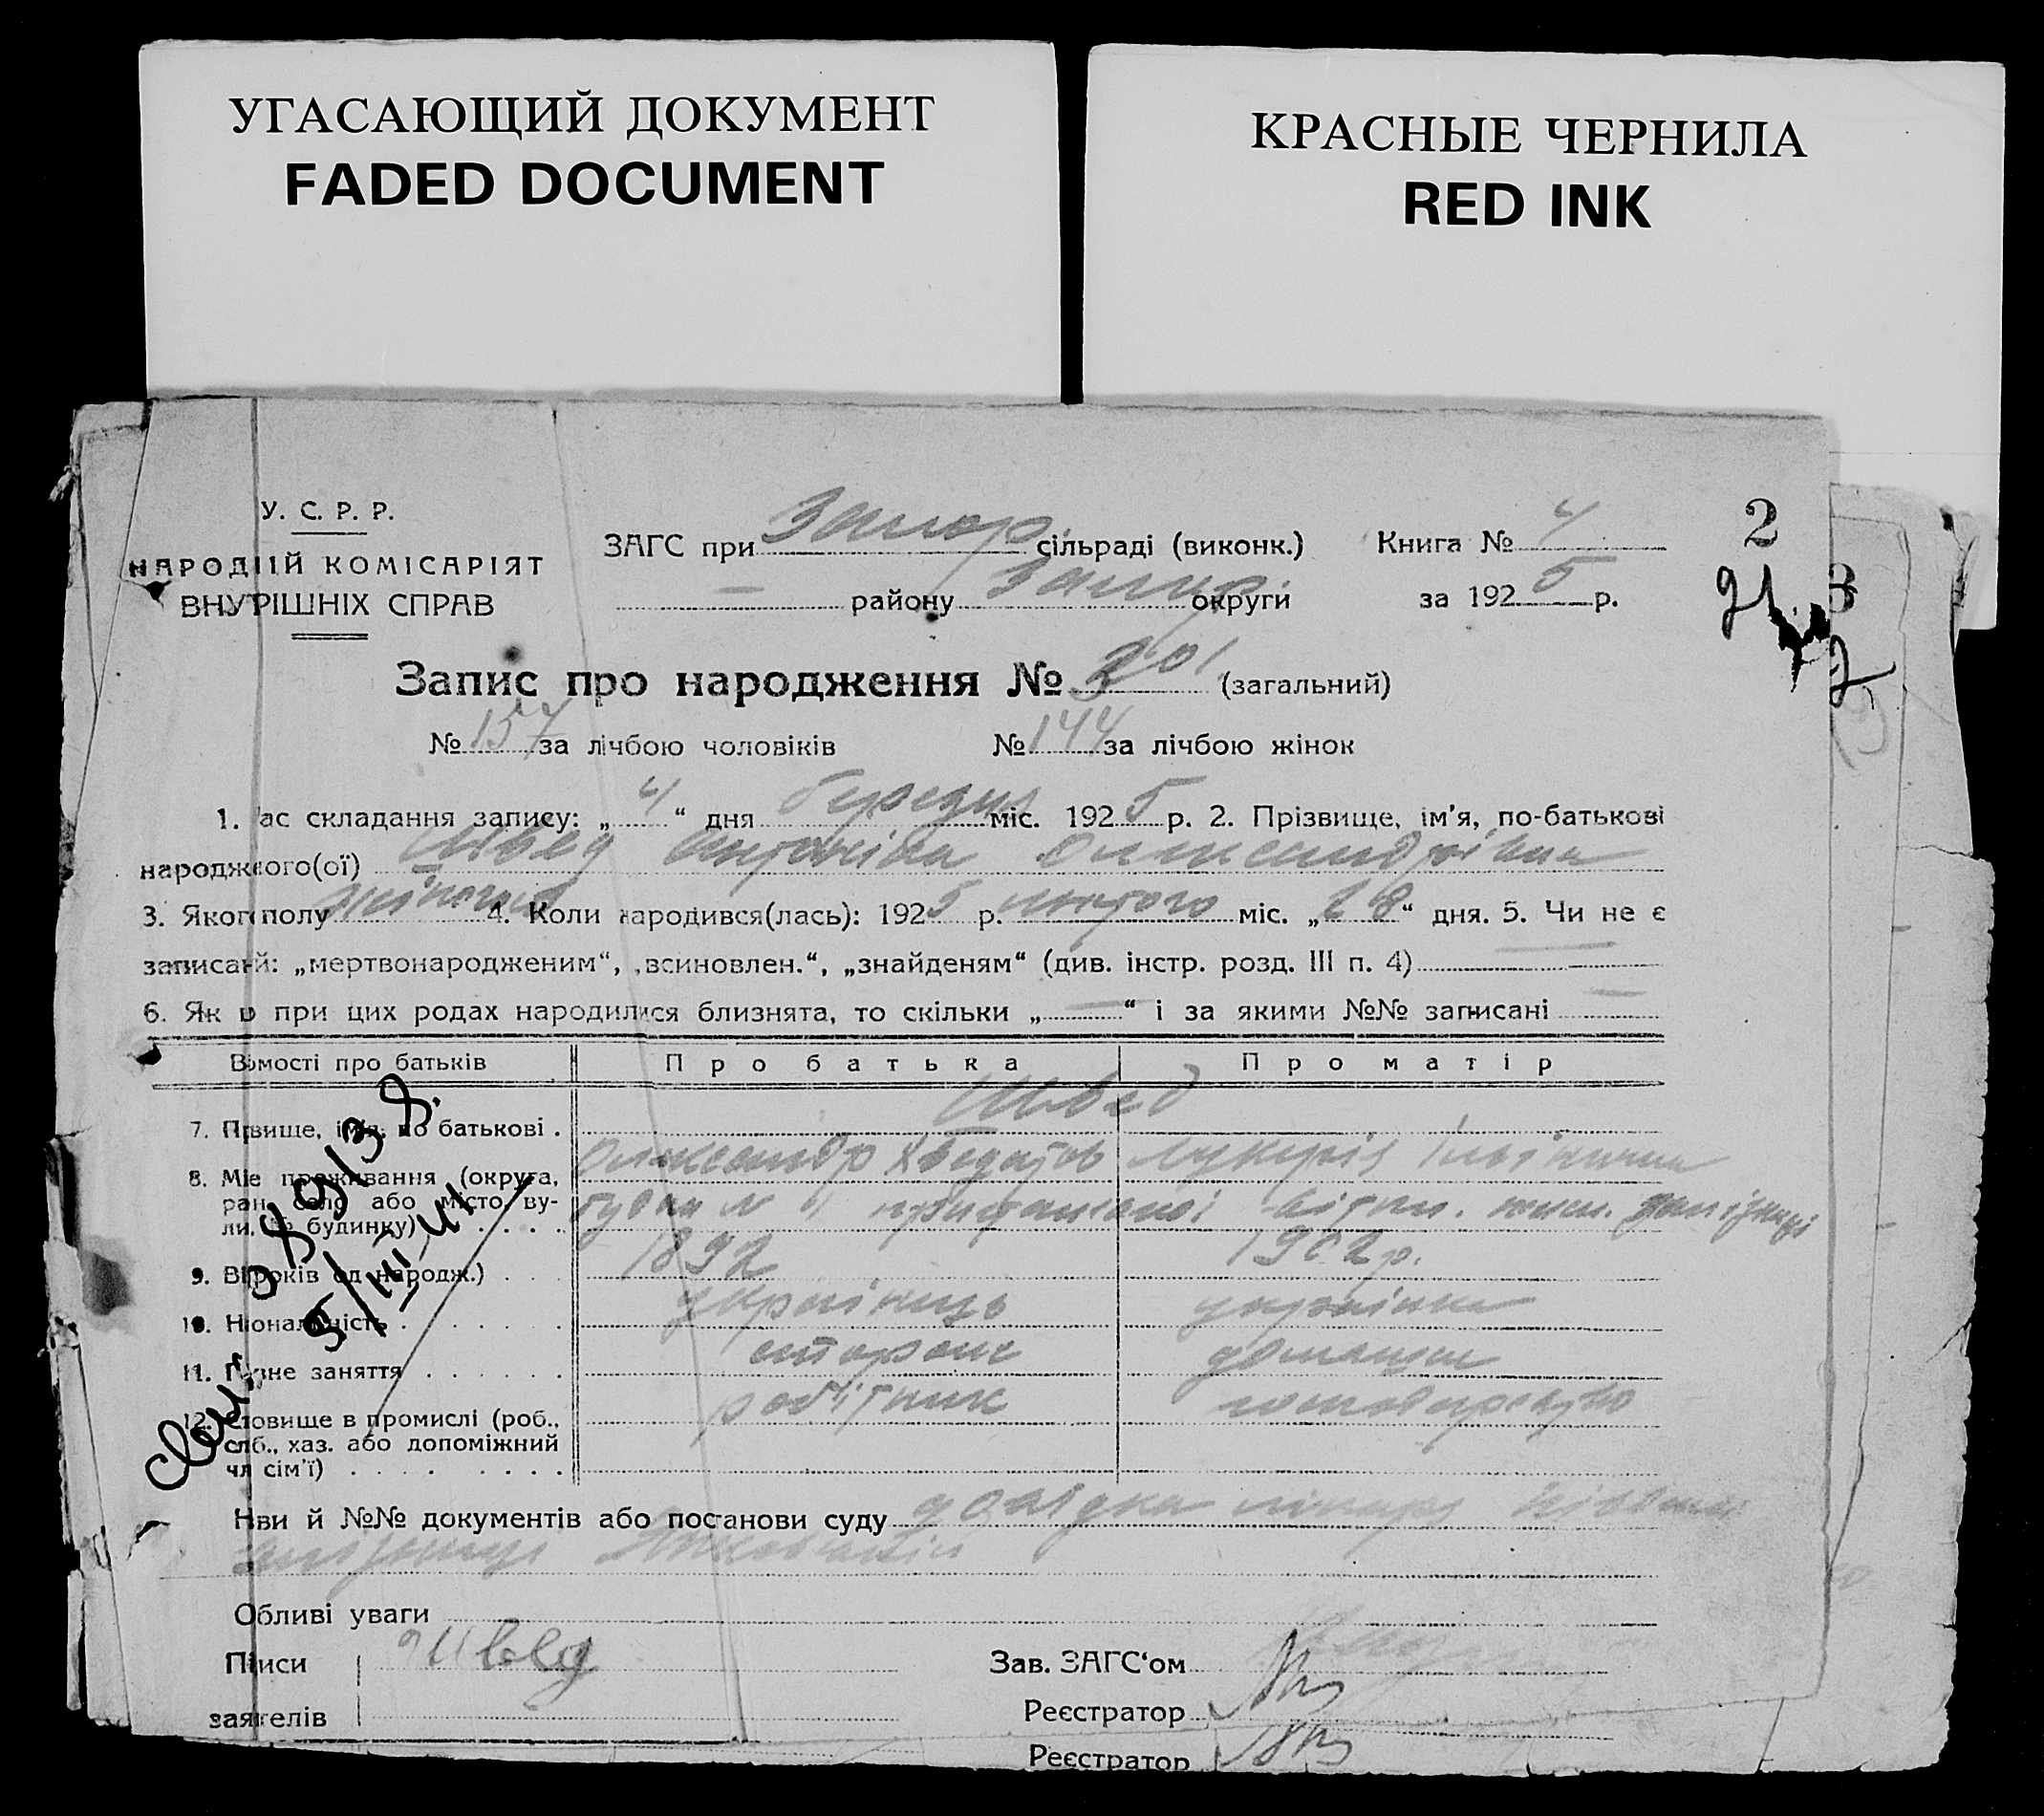 УГАСАЮЩИЙ ДОКУМЕНТ
FADED DOCUMENT
КРАСНЫЕ ЧЕРНИЛА
RED INK
У. С. Р. Р.
НАРОДНІЙ КОМІСАРІЯТ
ВНУТРІШНІХ СПРАВ
ЗАГС при Запор. сільраді (виконк.) Книга № 4
— району Запор. округи за 1925 р.
2
21.
3
2
Запис про народження № 301 (загальний)
№ 157 за лічбою чоловіків № 144 за лічбою жінок
1. ас складання запису: „ 4 “ дня березня міс. 1925 р. 2. Прізвище, ім’я, по-батькові
народженого(ої) Швед Антоніна Олександрівна
3. Якого полу жіночого 4. Коли народився(лась): 1925 р. лютого міс. „ 28 “ дня. 5. Чи не є
записаний: „мертвонародженим“, „всиновлен.“, „знайденям“ (див. інстр. розд. III п. 4) —
6. Як о при цих родах народилися близнята, то скільки „ — “ і за якими №№ записані —
Відомості про батьків Про батька Про матір
Швед
7. Прізвище, ім’я, по батькові .
Олександр Лукерія
8. Міе проживання (округа,
ран, село або місто, ву-
ли, № будинку)
будки №
9. Вік (років од народж.) 1892 1902 р.
10. Національність українець українка
11. Головне заняття сторож домашнє
12. Становище в промислі (роб., робітник господарство
слб., хаз. або допоміжний
чл сім’ї)
Нви й №№ документів або постанови суду довідка лікаря
Обливі уваги
Підписи Швед Зав. ЗАГС‘ом
заявтелів Реєстратор
Реєстратор